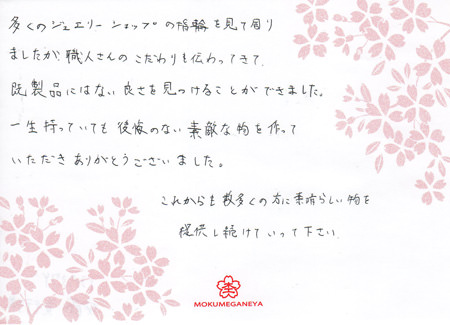 多くのジュエリーショップの指輪を見て周り
ましたが職人さんのこだわりも伝わってきて、
既製品にはない良さを見つけることができました。
一生持っていても後悔のない素敵な物を作って
いただきありがとうございました。
これからも数多くの方に素晴らしい物を
提供し続けていって下さい。
MOKUMEGANEYA